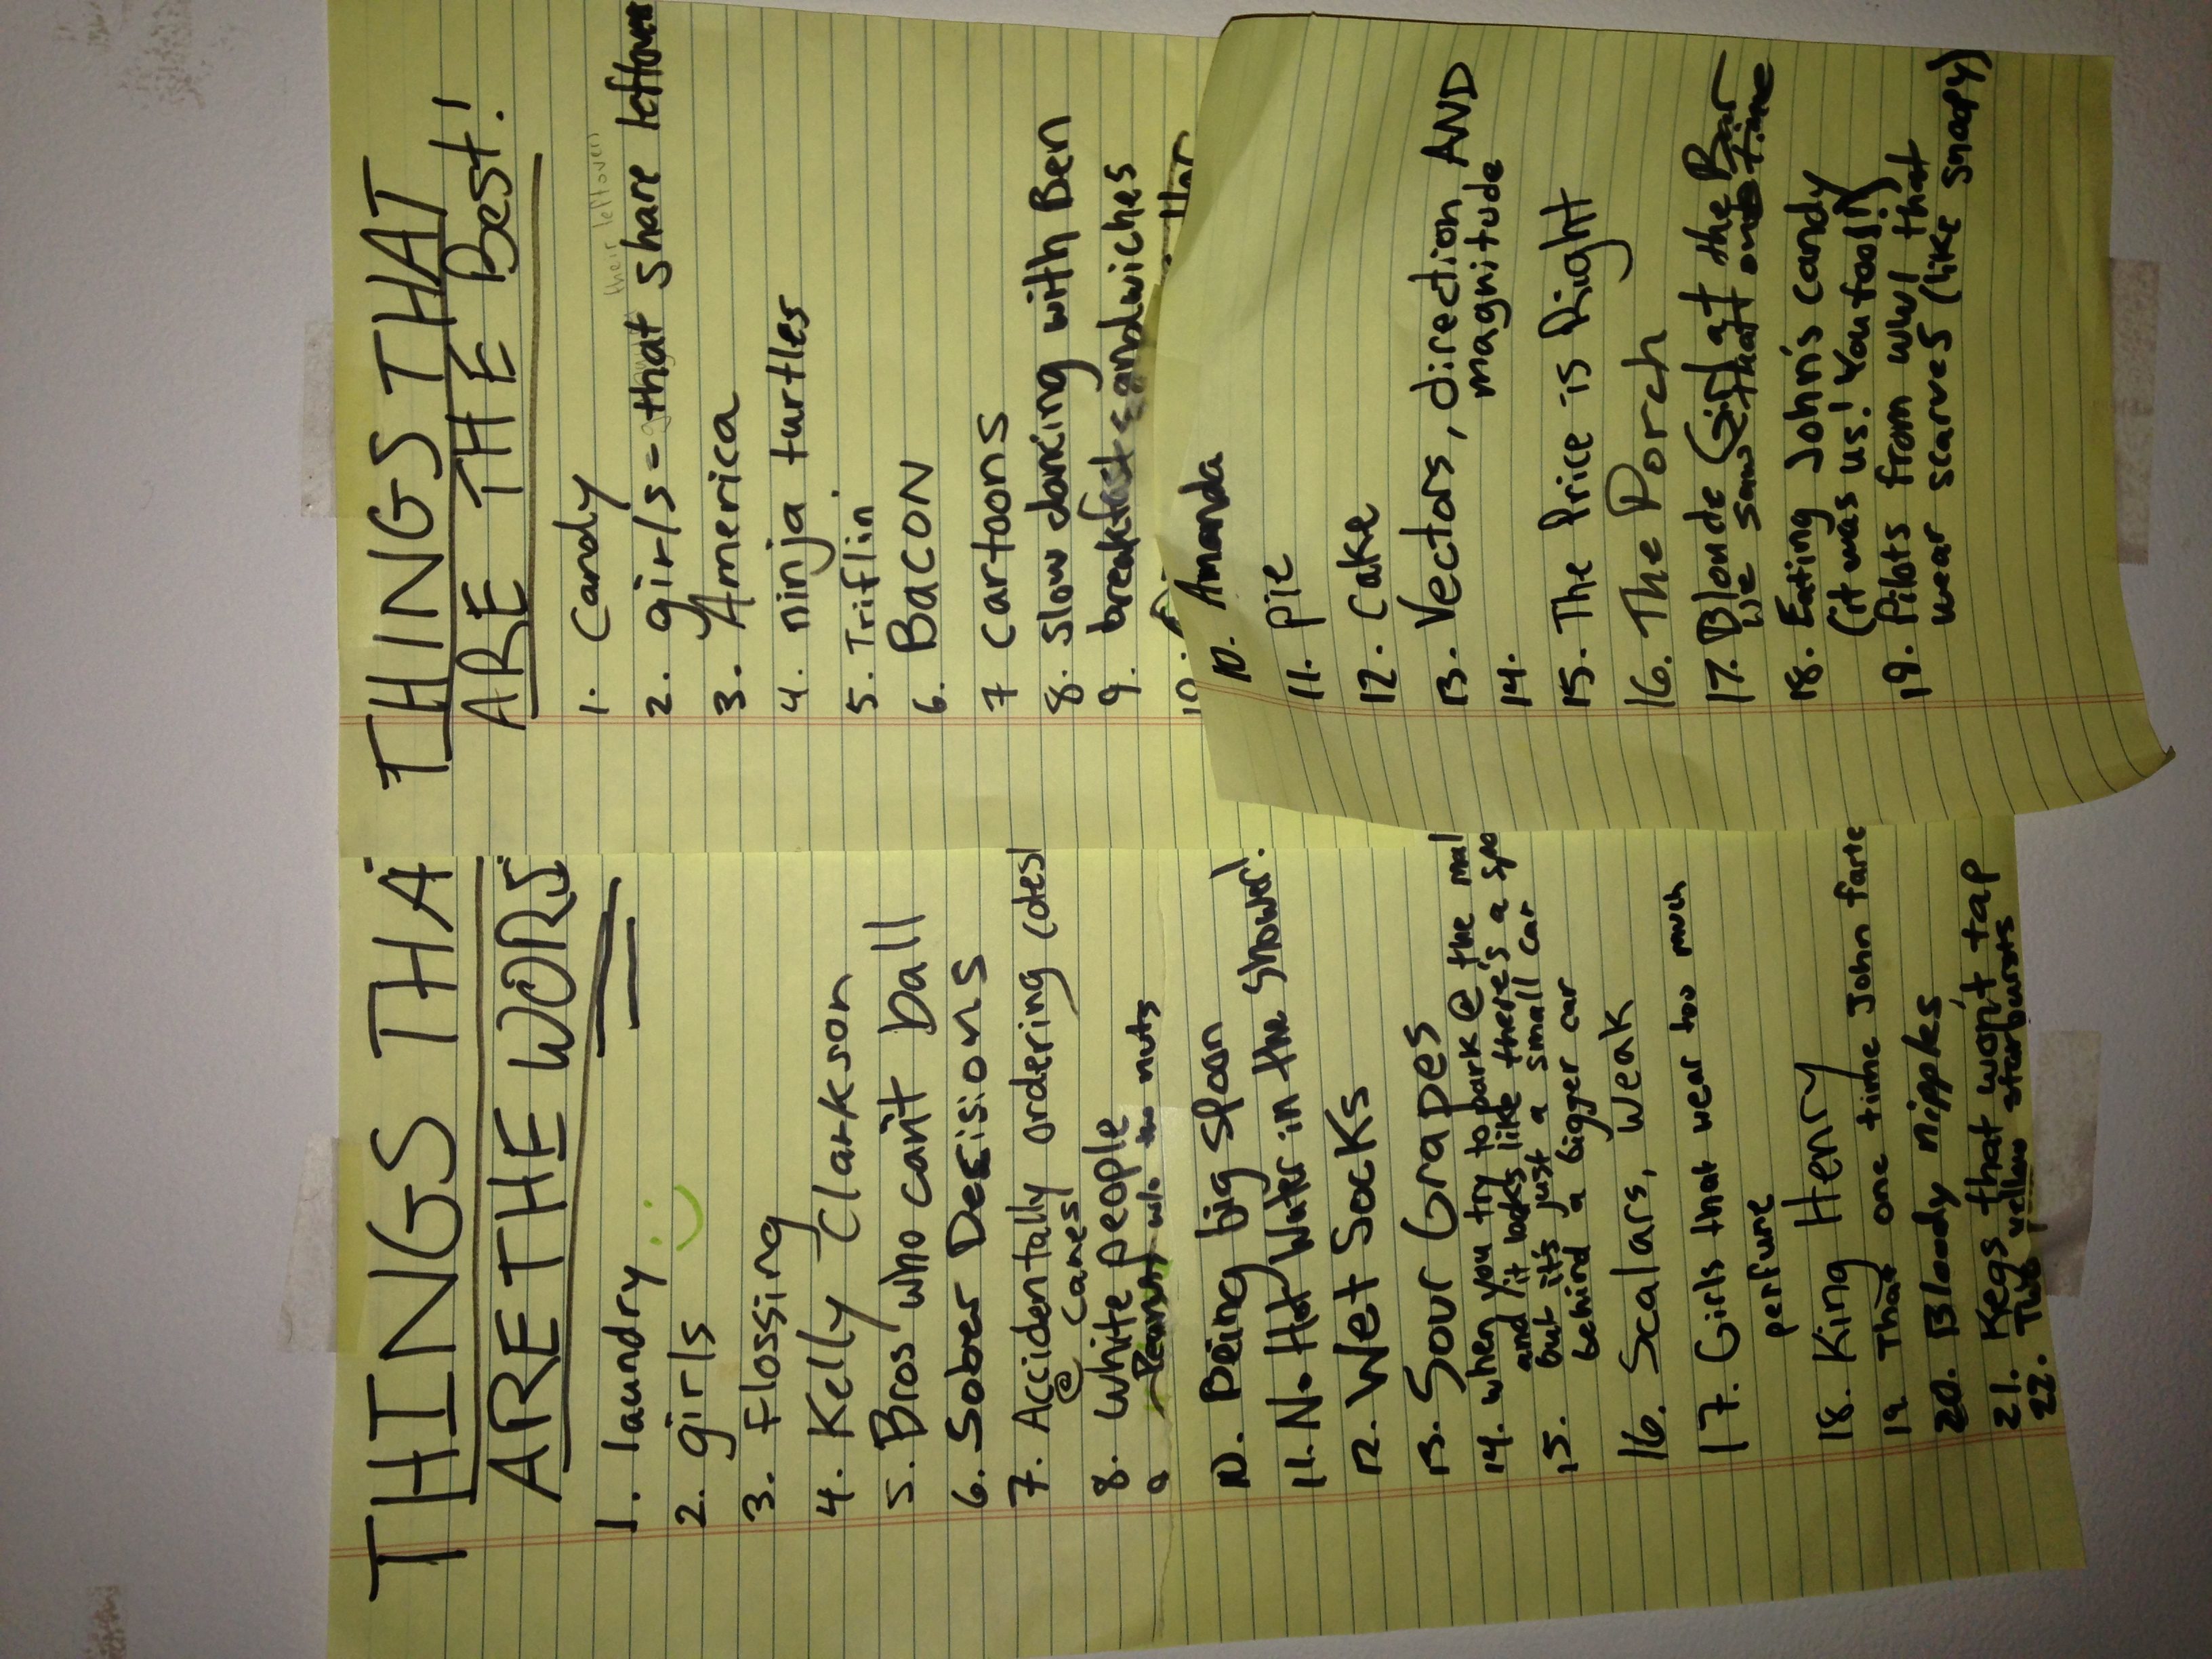 THINGS THA
ARE THE WORS
1. laundry
2. girls
3. Flossing
4. Kelly Clarkson
5. Bros who can't ball
6. Sober Decisions
7. Accidentally ordering coles
@ Canes
8. White people
9 Peanut w/o nuts
10. Being big spoon
11. No Hot Water in the Shower!
12. Wet Socks
13. Sour Grapes
14. when you try to park @ the mal
and it looks like there's a spo
15. but it's just a small car
behind a bigger car
16. Scalars, weak
17. Girls that wear too much
perfume
18. King Henry
19. That one time John farte
20. Bloody nipples
21. Kegs that won't tap
22. Two yellow starbursts
THINGS THAT
ARE THE Best!
1. Candy
their leftovers
2. girls - that share leftovers
3. America
4. ninja turtles
5. Triflin'
6. BACON
7 cartoons
8. slow dancing with Ben
9. breakfast sandwiches
10.
10. Amanda
11. pie
12. cake
13. Vectors, direction AND
magnitude
14.
15. The Price is Right
16. The Porch
17. Blonde Girl at the Bar
we saw that one time
18. Eating John's candy
(it was us! You fool!)
19. Pilots from WW1 that
wear scarves (like snoopy)